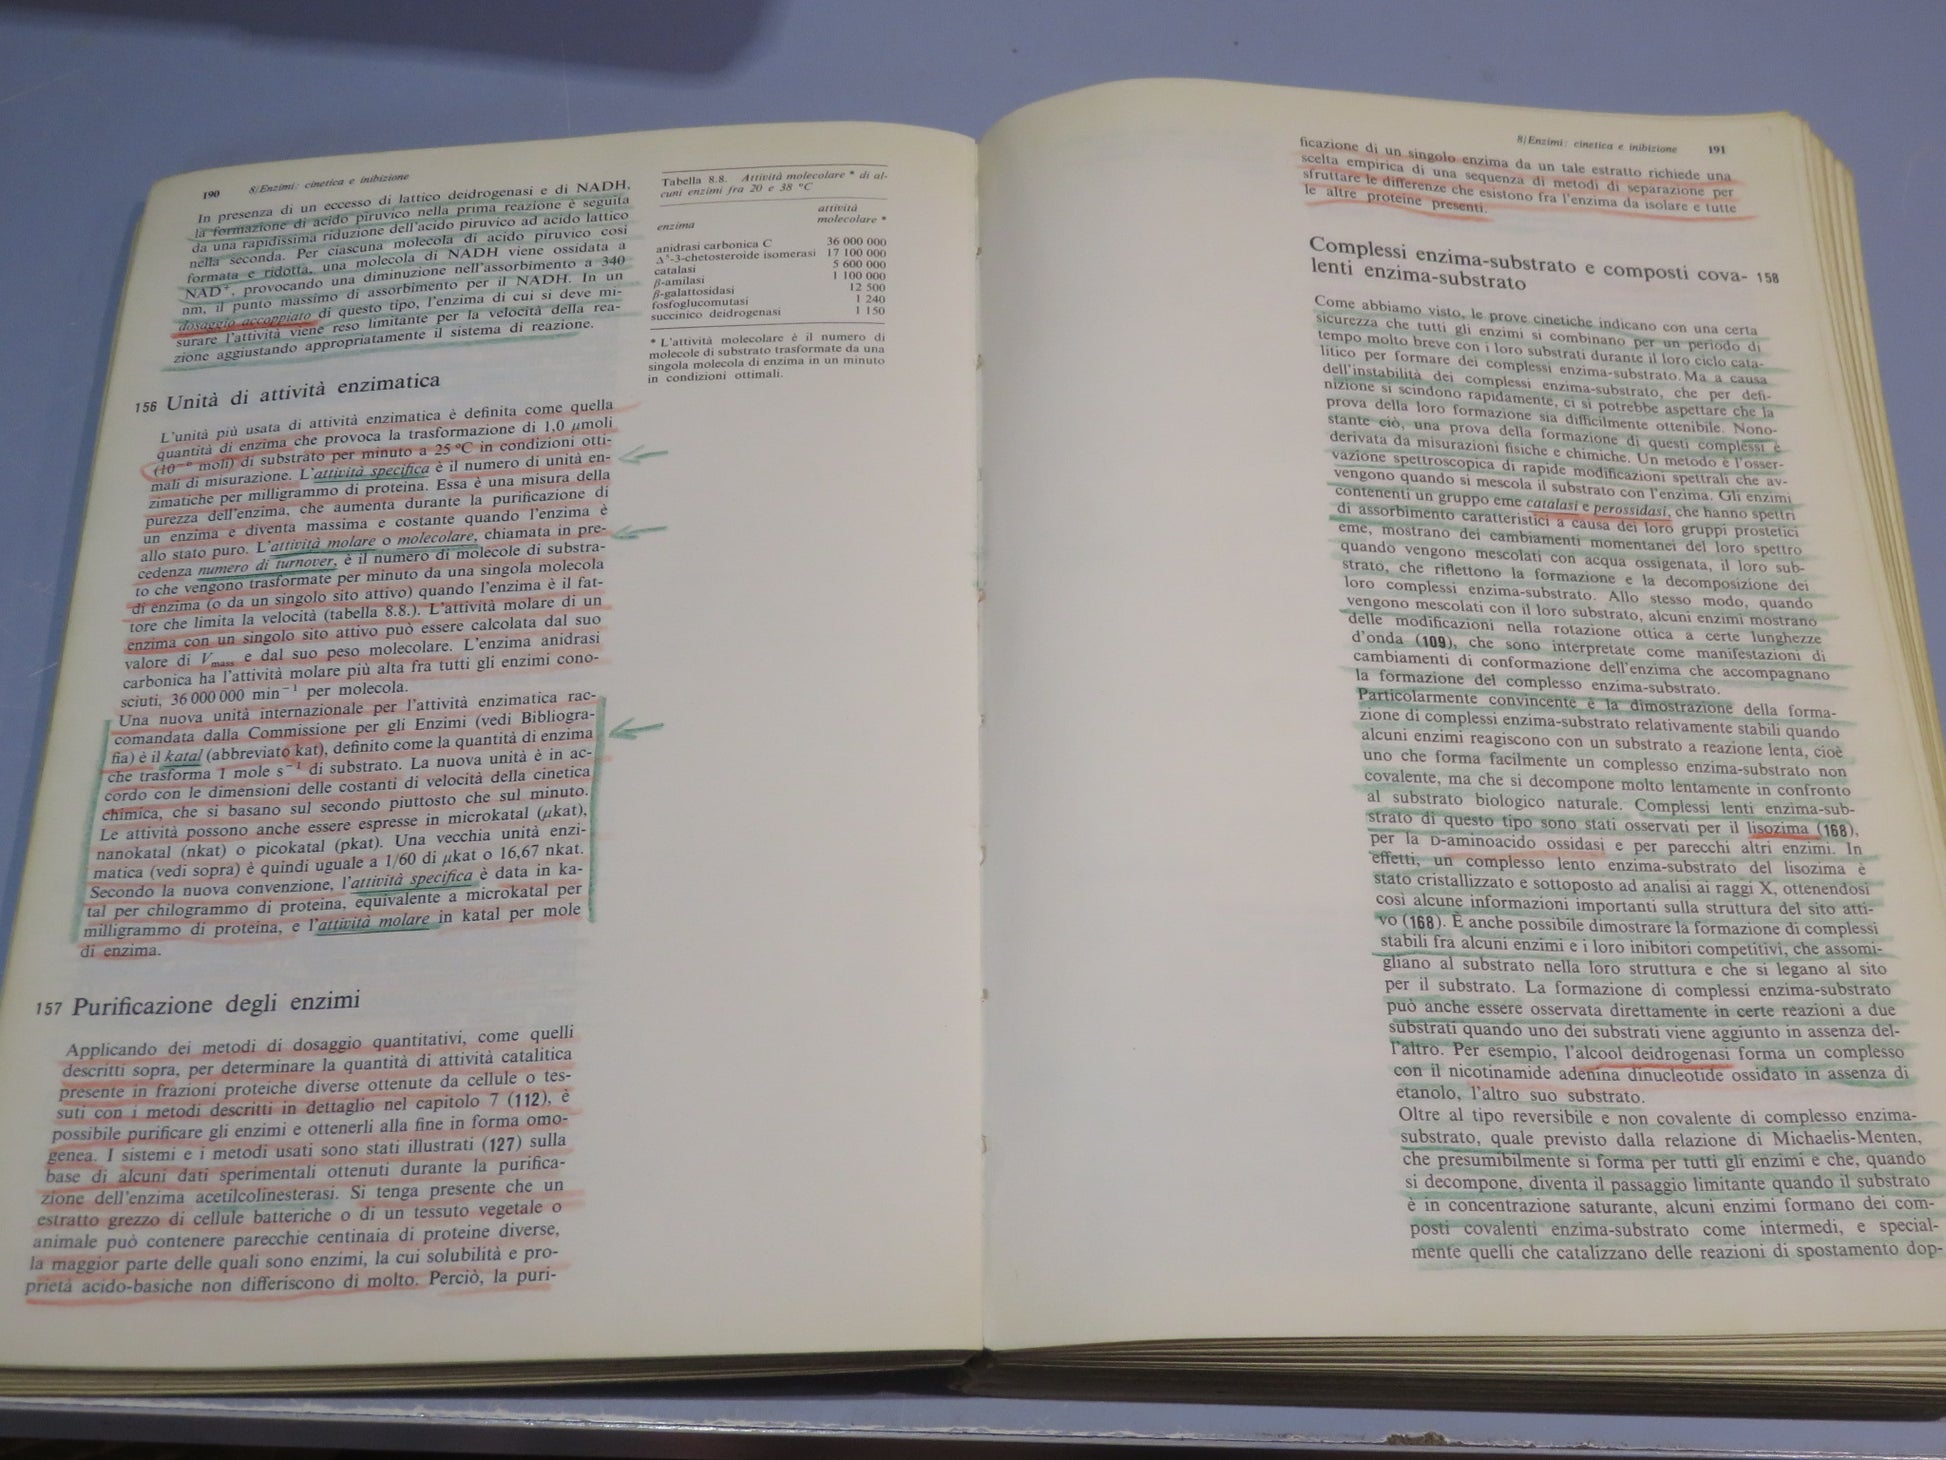 190
8/Enzimi: cinetica e inibizione
In presenza di un eccesso di lattico deidrogenasi e di NADH,
la formazione di acido piruvico nella prima reazione è seguita
da una rapidissima riduzione dell'acido piruvico ad acido lattico
nella seconda. Per ciascuna molecola di acido piruvico così
formata e ridotta, una molecola di NADH viene ossidata a
NAD⁺, provocando una diminuzione nell'assorbimento a 340
nm, il punto massimo di assorbimento per il NADH. In un
dosaggio accoppiato di questo tipo, l'enzima di cui si deve mi-
surare l'attività viene reso limitante per la velocità della rea-
zione aggiustando appropriatamente il sistema di reazione.
156 Unità di attività enzimatica
L'unità più usata di attività enzimatica è definita come quella
quantità di enzima che provoca la trasformazione di 1,0 μmoli
(10⁻⁶ moli) di substrato per minuto a 25 °C in condizioni otti-
mali di misurazione. L'attività specifica è il numero di unità en-
zimatiche per milligrammo di proteina. Essa è una misura della
purezza dell'enzima, che aumenta durante la purificazione di
un enzima e diventa massima e costante quando l'enzima è
allo stato puro. L'attività molare o molecolare, chiamata in pre-
cedenza numero di turnover, è il numero di molecole di substra-
to che vengono trasformate per minuto da una singola molecola
di enzima (o da un singolo sito attivo) quando l'enzima è il fat-
tore che limita la velocità (tabella 8.8.). L'attività molare di un
enzima con un singolo sito attivo può essere calcolata dal suo
valore di Vmass e dal suo peso molecolare. L'enzima anidrasi
carbonica ha l'attività molare più alta fra tutti gli enzimi cono-
sciuti, 36 000 000 min⁻¹ per molecola.
Una nuova unità internazionale per l'attività enzimatica rac-
comandata dalla Commissione per gli Enzimi (vedi Bibliogra-
fia) è il katal (abbreviato kat), definito come la quantità di enzima
che trasforma 1 mole s⁻¹ di substrato. La nuova unità è in ac-
cordo con le dimensioni delle costanti di velocità della cinetica
chimica, che si basano sul secondo piuttosto che sul minuto.
Le attività possono anche essere espresse in microkatal (μkat),
nanokatal (nkat) o picokatal (pkat). Una vecchia unità enzi-
matica (vedi sopra) è quindi uguale a 1/60 di μkat o 16,67 nkat.
Secondo la nuova convenzione, l'attività specifica è data in ka-
tal per chilogrammo di proteina, equivalente a microkatal per
milligrammo di proteina, e l'attività molare in katal per mole
di enzima.
157 Purificazione degli enzimi
Applicando dei metodi di dosaggio quantitativi, come quelli
descritti sopra, per determinare la quantità di attività catalitica
presente in frazioni proteiche diverse ottenute da cellule o tes-
suti con i metodi descritti in dettaglio nel capitolo 7 (112), è
possibile purificare gli enzimi e ottenerli alla fine in forma omo-
genea. I sistemi e i metodi usati sono stati illustrati (127) sulla
base di alcuni dati sperimentali ottenuti durante la purifica-
zione dell'enzima acetilcolinesterasi. Si tenga presente che un
estratto grezzo di cellule batteriche o di un tessuto vegetale o
animale può contenere parecchie centinaia di proteine diverse,
la maggior parte delle quali sono enzimi, la cui solubilità e pro-
prietà acido-basiche non differiscono di molto. Perciò, la puri-
Tabella 8.8. Attività molecolare * di al-
cuni enzimi fra 20 e 38 °C
enzima attività
molecolare *
anidrasi carbonica C 36 000 000
Δ⁵-3-chetosteroide isomerasi 17 100 000
catalasi 5 600 000
β-amilasi 1 100 000
β-galattosidasi 12 500
fosfoglucomutasi 1 240
succinico deidrogenasi 1 150
* L'attività molecolare è il numero di
molecole di substrato trasformate da una
singola molecola di enzima in un minuto
in condizioni ottimali.
8/Enzimi: cinetica e inibizione
191
ficazione di un singolo enzima da un tale estratto richiede una
scelta empirica di una sequenza di metodi di separazione per
sfruttare le differenze che esistono fra l'enzima da isolare e tutte
le altre proteine presenti.
Complessi enzima-substrato e composti cova- 158
lenti enzima-substrato
Come abbiamo visto, le prove cinetiche indicano con una certa
sicurezza che tutti gli enzimi si combinano per un periodo di
tempo molto breve con i loro substrati durante il loro ciclo cata-
litico per formare dei complessi enzima-substrato. Ma a causa
dell'instabilità dei complessi enzima-substrato, che per defi-
nizione si scindono rapidamente, ci si potrebbe aspettare che la
prova della loro formazione sia difficilmente ottenibile. Nono-
stante ciò, una prova della formazione di questi complessi è
derivata da misurazioni fisiche e chimiche. Un metodo è l'osser-
vazione spettroscopica di rapide modificazioni spettrali che av-
vengono quando si mescola il substrato con l'enzima. Gli enzimi
contenenti un gruppo eme catalasi e perossidasi, che hanno spettri
di assorbimento caratteristici a causa dei loro gruppi prostetici
eme, mostrano dei cambiamenti momentanei del loro spettro
quando vengono mescolati con acqua ossigenata, il loro sub-
strato, che riflettono la formazione e la decomposizione dei
loro complessi enzima-substrato. Allo stesso modo, quando
vengono mescolati con il loro substrato, alcuni enzimi mostrano
delle modificazioni nella rotazione ottica a certe lunghezze
d'onda (109), che sono interpretate come manifestazioni di
cambiamenti di conformazione dell'enzima che accompagnano
la formazione del complesso enzima-substrato.
Particolarmente convincente è la dimostrazione della forma-
zione di complessi enzima-substrato relativamente stabili quando
alcuni enzimi reagiscono con un substrato a reazione lenta, cioè
uno che forma facilmente un complesso enzima-substrato non
covalente, ma che si decompone molto lentamente in confronto
al substrato biologico naturale. Complessi lenti enzima-sub-
strato di questo tipo sono stati osservati per il lisozima (168),
per la D-aminoacido ossidasi e per parecchi altri enzimi. In
effetti, un complesso lento enzima-substrato del lisozima è
stato cristallizzato e sottoposto ad analisi ai raggi X, ottenendosi
così alcune informazioni importanti sulla struttura del sito atti-
vo (168). È anche possibile dimostrare la formazione di complessi
stabili fra alcuni enzimi e i loro inibitori competitivi, che assomi-
gliano al substrato nella loro struttura e che si legano al sito
per il substrato. La formazione di complessi enzima-substrato
può anche essere osservata direttamente in certe reazioni a due
substrati quando uno dei substrati viene aggiunto in assenza del-
l'altro. Per esempio, l'alcool deidrogenasi forma un complesso
con il nicotinamide adenina dinucleotide ossidato in assenza di
etanolo, l'altro suo substrato.
Oltre al tipo reversibile e non covalente di complesso enzima-
substrato, quale previsto dalla relazione di Michaelis-Menten,
che presumibilmente si forma per tutti gli enzimi e che, quando
si decompone, diventa il passaggio limitante quando il substrato
è in concentrazione saturante, alcuni enzimi formano dei com-
posti covalenti enzima-substrato come intermedi, e special-
mente quelli che catalizzano delle reazioni di spostamento dop-